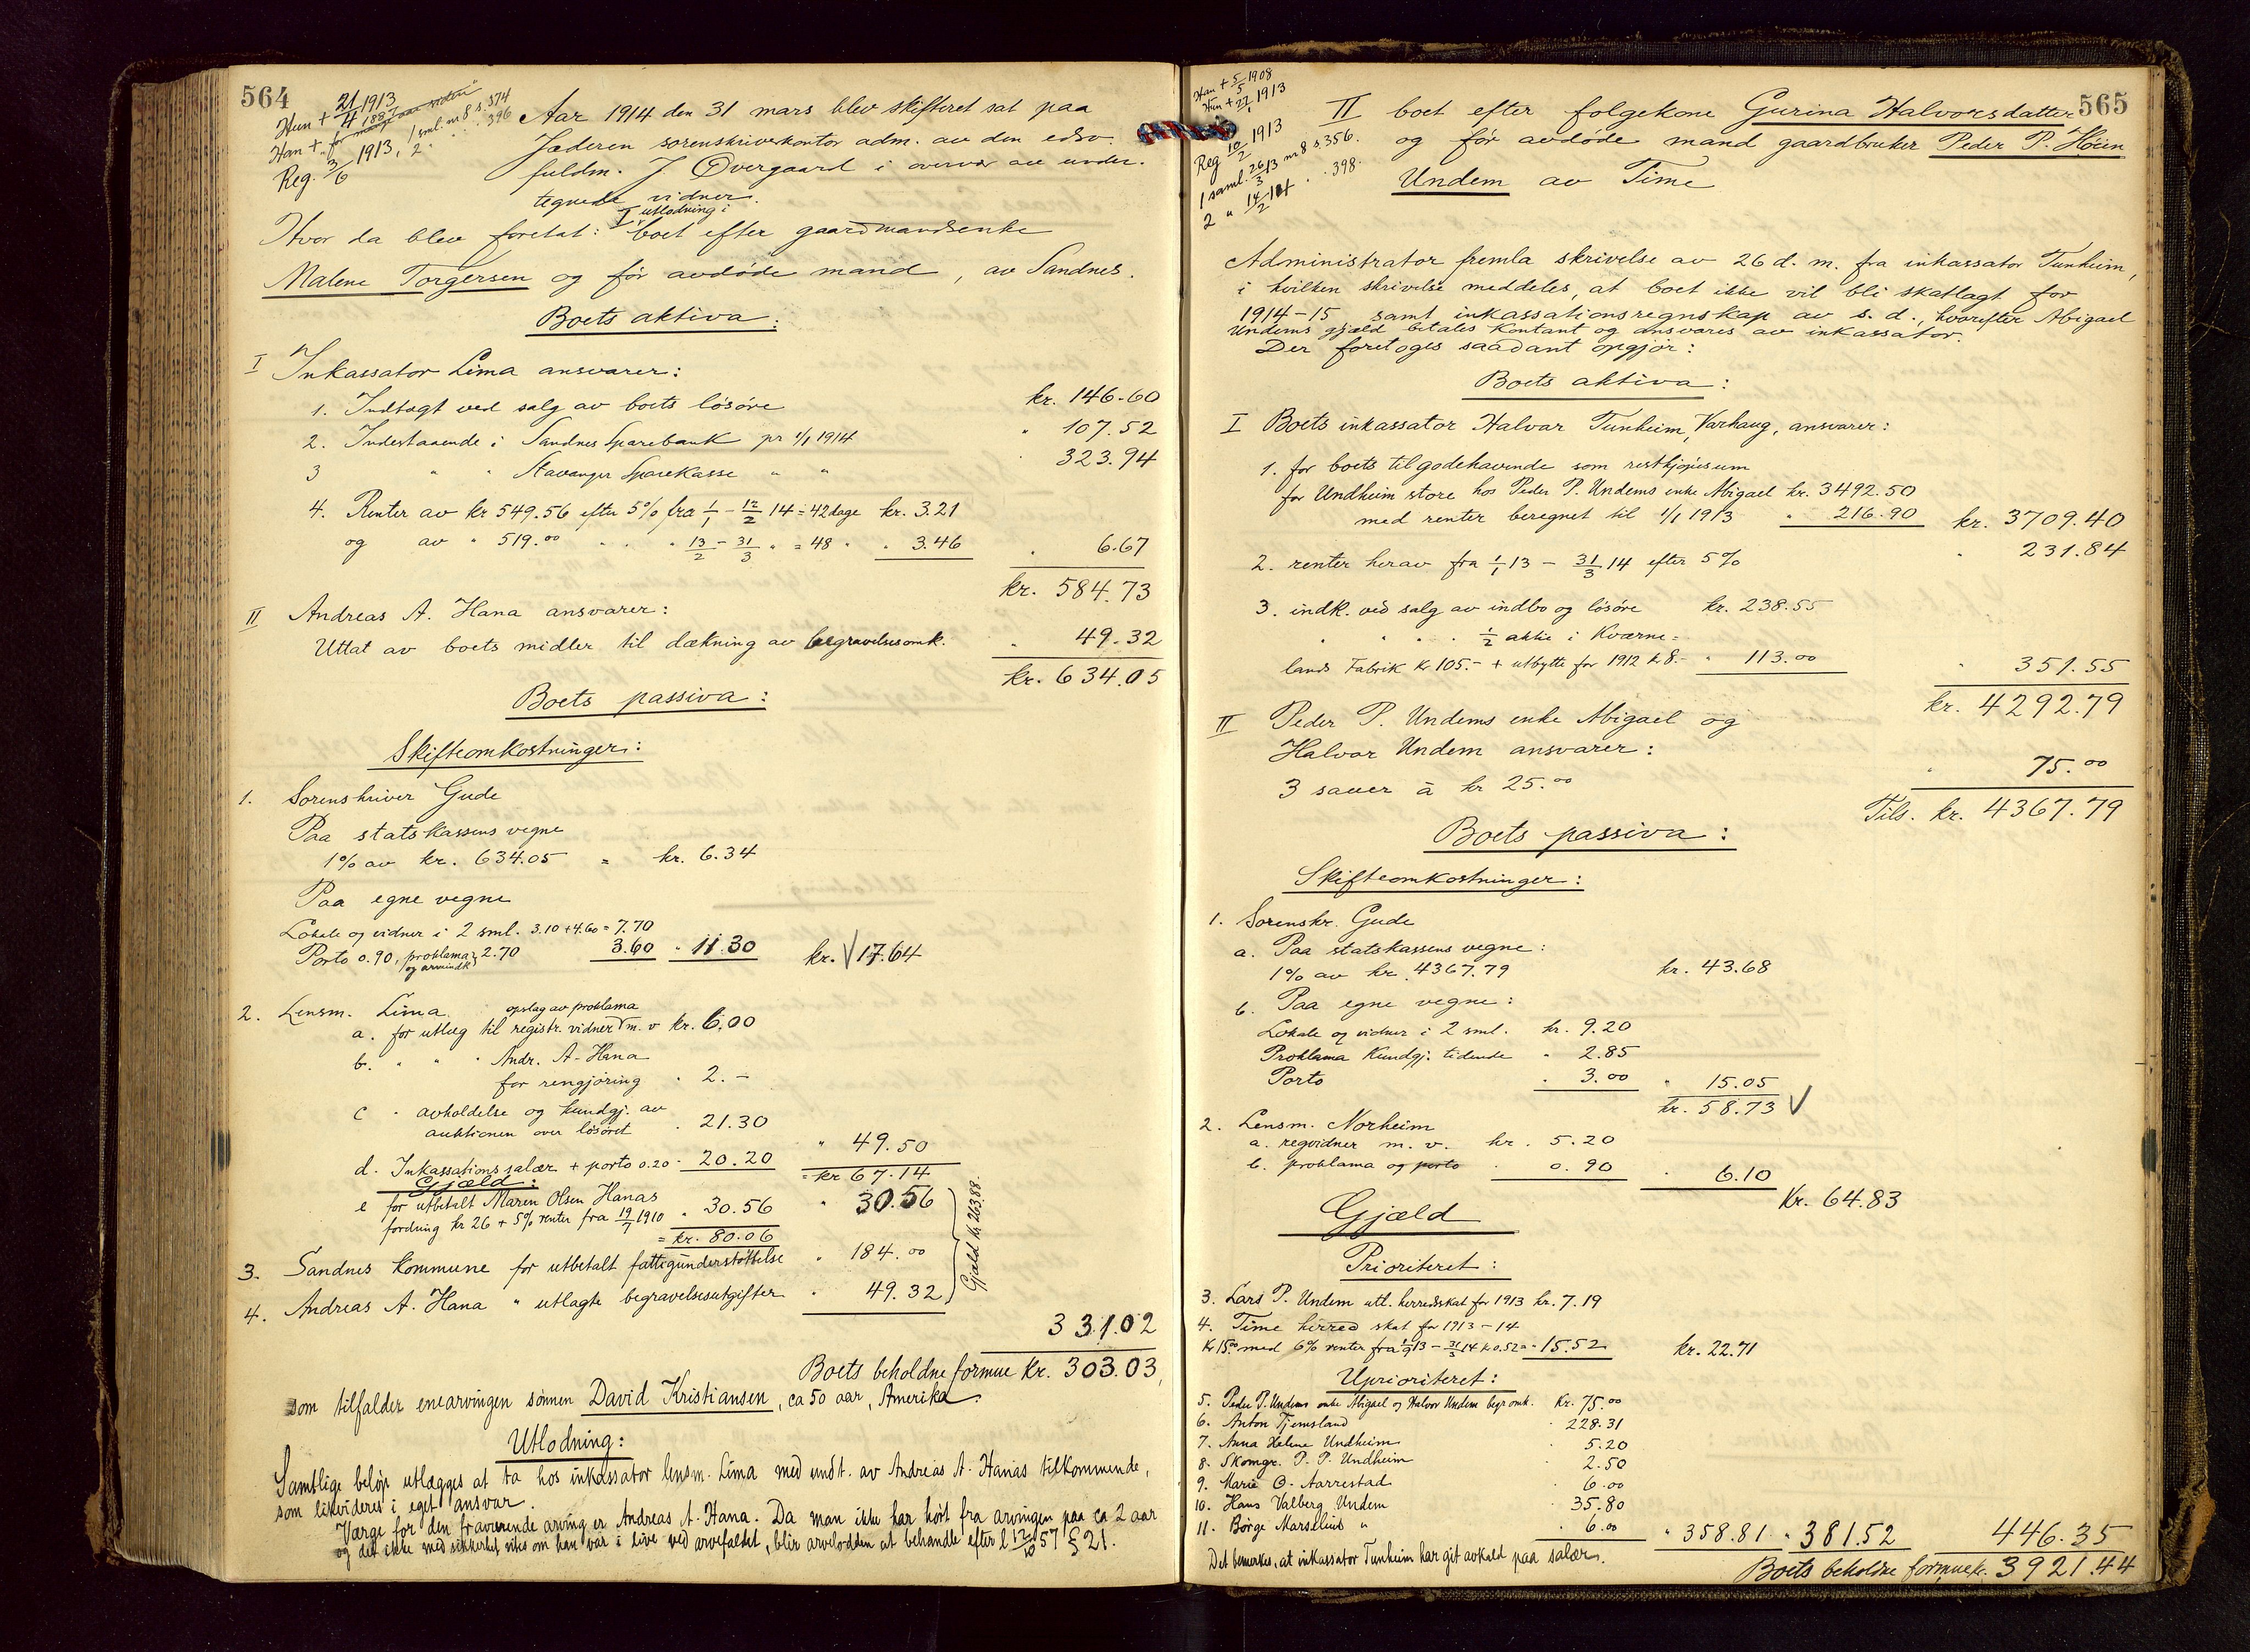 564
Hun + 21/4 1913
Han + for mange aar siden 1887
Reg. 3/6 1913, 1 sml. m 8 s. 374
2 " . . 396
Aar 1914 den 31 mars blev skifteret sat paa
Jæderen sorenskriverkontor adm. av den edsv.
fuldm. J. Øvergaard i overvær av under-
tegnede vidner.
Hvor da blev foretat: I utlodning i boet efter gaardmandsenke
Malene Torgersen og før avdøde mand, av Sandnes.
Boets aktiva:
I Inkassator Lima ansvarer:
1. Indtægt ved salg av boets løsøre kr. 146.60
2. Indestaaende i Sandnes Sparebank pr 1/1 1914 " 107.52
3 " " Stavanger Sparekasse " " 323.94
4. Renter av kr 549.56 efter 5% fra 1/1 - 12/2 14 = 42 dage kr. 3.21
og av " 519.00 . . " 13/2 - 31/3 " = 48 " " 3.46 " 6.67
kr. 584.73
II Andreas A. Hana ansvarer:
Uttat av boets midler til dækning av begravelsesomk. " 49.32
kr. 634.05
Boets passiva:
Skifteomkostninger:
1. Sorenskriver Gude
Paa statskassens vegne
1% av kr. 634.05 = kr. 6.34
Paa egne vegne
Lokale og vidner i 2 sml. 3.10 + 4.60 = 7.70
Porto 0.90, proklama og arvindk 2.70 3.60 " 11.30 kr. 17.64
2. Lensm. Lima
a. for utlæg til registr. vidner opslag av proklama m. v kr. 6.00
b. " " " Andr. A. Hana
for rengjøring " 2.-
c " avholdelse og kundgj. av
auktionen over løsøret " 21.30
d. Inkassationssalær + porto 0.20 " 20.20 " 49.50
= kr 67.14
Gjæld:
e for utbetalt Maren Olsen Hanas
fordring kr 26 + 5% renter fra 19/7 1910 " 30.56 " 30.56
= kr. 80.06
3. Sandnes kommune for utbetalt fattigunderstøttelse " 184.00
4. Andreas A. Hana " utlagte begravelsesutgifter " 49.32
Gjæld kr 263.88.
331.02
Boets beholdne formue kr. 303.03,
som tilfalder enearvingen sønnen David Kristiansen, ca 50 aar, Amerika.
Utlodning:
Samtlige beløp utlægges at ta hos inkassator lensm. Lima med undt. av Andreas A. Hanas tilkommende,
som likvideres i eget ansvar.
Værge for den fraværende arving er Andreas A. Hana. Da man ikke har hørt fra arvingen paa ca 2 aar
og det ikke med sikkerhet vites om han var i live ved arvefaldet, blir arvelodden at behandle efter l 12/10 57 § 21.
565
Han + 5/5 1908
Hun + 27/1 1913
Reg 10/2 1913
1 saml. 26/3 13 m 8 s. 356.
2 " 14/2 14 . . 398.
II boet efter følgekone Gurina Halvorsdatter
og før avdøde mand gaardbruker Peder P. Høien
Undem av Time
Administrator fremla skrivelse av 26 d. m. fra inkassator Tunheim,
i hvilken skrivelse meddeles, at boet ikke vil bli skatlagt for
1914-15 samt inkassationsregnskap av s. d., hvorefter Abigael
Undems gjæld betales kontant og ansvares av inkassator.
Der foretoges saadant opgjør:
Boets aktiva:
I Boets inkassator Halvar Tunheim, Varhaug, ansvarer:
1. for boets tilgodehavende som restkjøpesum
for Undheim store hos Peder P. Undems enke Abigael kr. 3492.50
med renter beregnet til 1/1 1913 " 216.90 kr. 3709.40
2. renter herav fra 1/1 13 - 31/3 14 efter 5% " 231.84
3. indk. ved salg av indbo og løsøre kr. 238.55
" " . . 1/2 aktie i Kværne-
lands Fabrik kr 105.- + utbytte for 1912 kr 8.- " 113.00 " 351.55
kr. 4292.79
II Peder P. Undems enke Abigael og
Halvor Undem ansvarer:
3 sauer à kr 25.00 " 75.00
Tils. kr. 4367.79
Boets passiva:
Skifteomkostninger:
1. Sorenskr. Gude
a. Paa statskassens vegne:
1% av kr. 4367.79 kr. 43.68
b. Paa egne vegne:
Lokale og vidner i 2 sml. kr. 9.20
Proklama Kundgj. tidende " 2.85
Porto " 3.00 " 15.05
kr. 58.73
2. Lensm. Norheim
a. regvidner m. v. kr. 5.20
b. proklama og porto " 0.90 " 6.10
Kr. 64.83
Gjæld
Prioriteret:
3. Lars P. Undem utl. herredsskat for 1913 kr. 7.19
4. Time herred skat for 1913-14
Kr 15.00 med 6% renter fra 1/9 13 - 31/3 14 kr 0.52 = " 15.52 kr. 22.71
Uprioriteret:
5. Peder P. Undems enke Abigael og Halvor Undem begr.omk. Kr. 75.00
6. Anton Tjemsland " 228.31
7. Anna Helene Undheim " 5.20
8. Skomgr. P. P. Undheim " 2.50
9. Marie O. Aarrestad " 6.00
10. Hans Valberg Undem " 35.80
11. Børge Marselius " " 6.00 " 358.81 " 381.52 446.35
Det bemerkes, at inkassator Tunheim har git avkald paa salær.
Boets beholdne formue kr. 3921.44